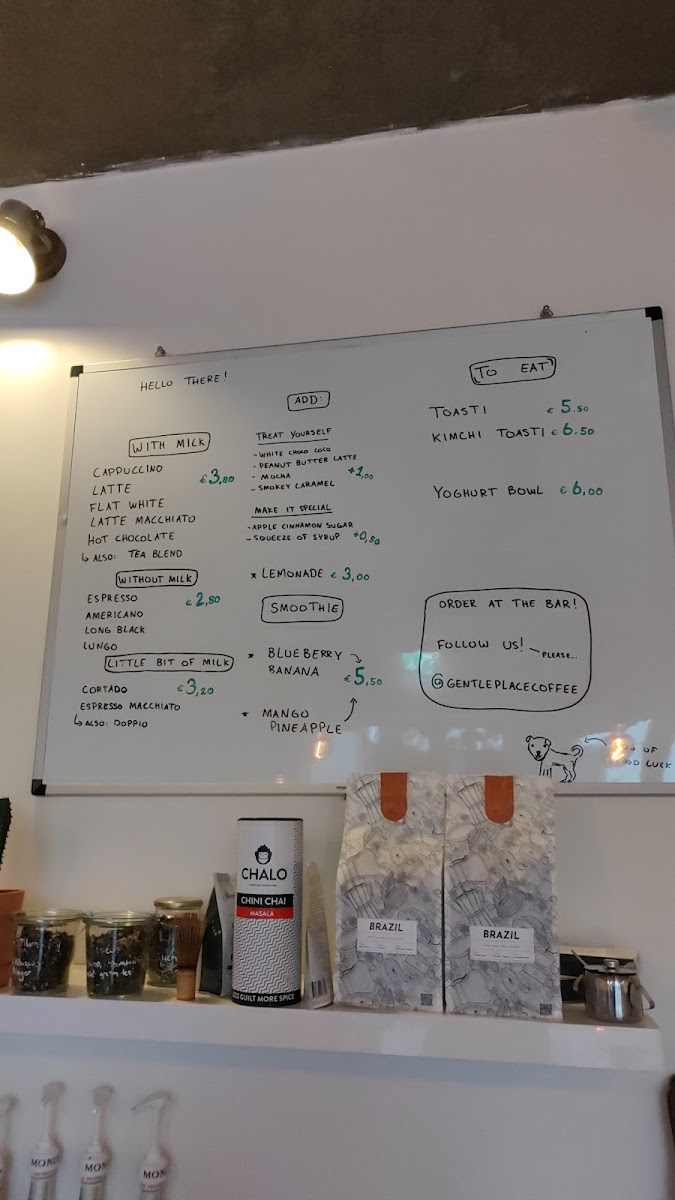 HELLO THERE!
WITH MILK
CAPPUCCINO
LATTE €3,80
FLAT WHITE
LATTE MACCHIATO
HOT CHOCOLATE
↳ ALSO: TEA BLEND
WITHOUT MILK
ESPRESSO €2,80
AMERICANO
LONG BLACK
LUNGO
LITTLE BIT OF MILK
CORTADO €3,20
ESPRESSO MACCHIATO
↳ ALSO: DOPPIO
ADD:
TREAT YOURSELF
- WHITE CHOCO COCO
- PEANUT BUTTER LATTE
- MOCHA +1,00
- SMOKEY CARAMEL
MAKE IT SPECIAL
- APPLE CINNAMON SUGAR
- SQUEEZE OF SYRUP +0,50
* LEMONADE € 3,00
SMOOTHIE
* BLUEBERRY
BANANA €5,50
* MANGO
PINEAPPLE
TO EAT
TOASTI € 5.50
KIMCHI TOASTI € 6.50
YOGHURT BOWL € 6,00
ORDER AT THE BAR!
FOLLOW US! PLEASE...
@GENTLEPLACECOFFEE
OF
LUCK
CHALO
CHINI CHAI
MASALA
GUILT MORE SPICE
BRAZIL
BRAZIL
MONI
MON
MO